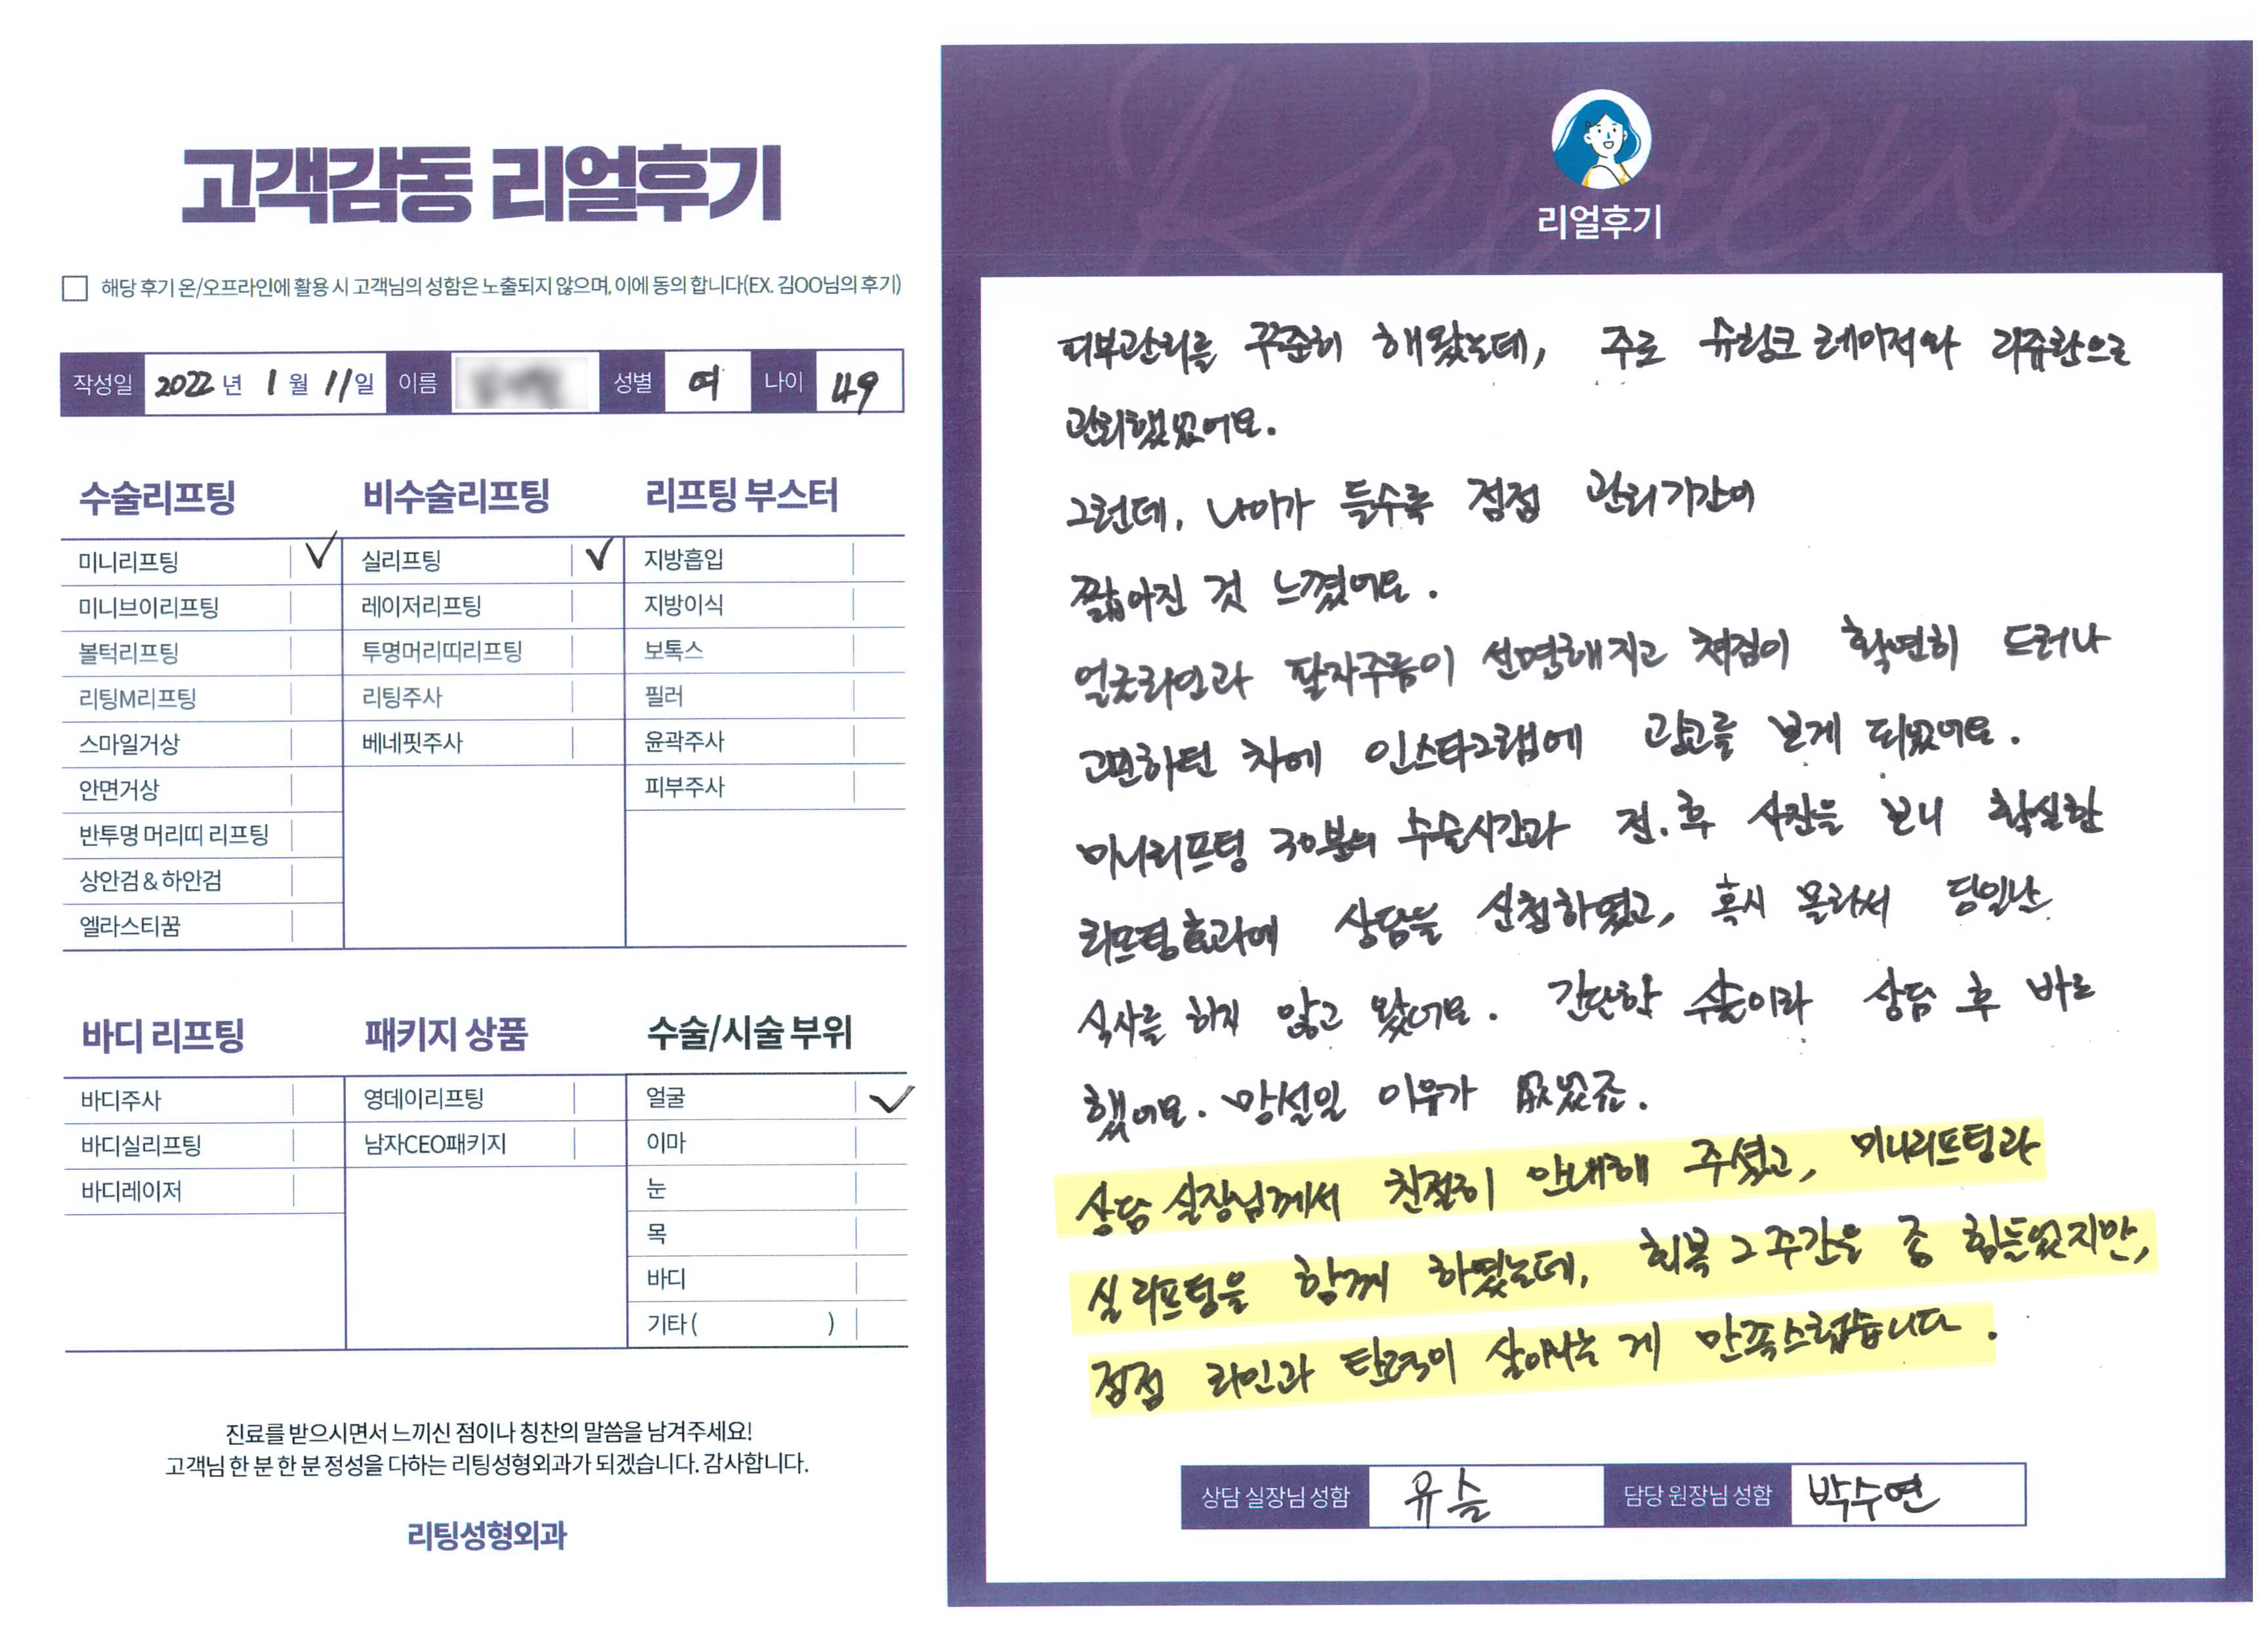 고객감동 리얼후기
해당 후기 온/오프라인에 활용 시 고객님의 성함은 노출되지 않으며, 이에 동의 합니다(EX. 김OO님의 후기)
작성일 2022 년 1 월 11 일 이름 성별 여 나이 49
수술리프팅
미니리프팅 ✓
미니브이리프팅
볼턱리프팅
리팅M리프팅
스마일거상
안면거상
반투명 머리띠 리프팅
상안검 & 하안검
엘라스티꿈
비수술리프팅
실리프팅 ✓
레이저리프팅
투명머리띠리프팅
리팅주사
베네핏주사
리프팅 부스터
지방흡입
지방이식
보톡스
필러
윤곽주사
피부주사
바디 리프팅
바디주사
바디실리프팅
바디레이저
패키지 상품
영데이리프팅
남자CEO패키지
수술/시술 부위
얼굴 ✓
이마
눈
목
바디
기타 ( )
진료를 받으시면서 느끼신 점이나 칭찬의 말씀을 남겨주세요!
고객님 한 분 한 분 정성을 다하는 리팅성형외과가 되겠습니다. 감사합니다.
리팅성형외과
Review
리얼후기
피부관리를 꾸준히 해왔는데, 주로 슈링크 레이저와 리쥬란으로
관리했었어요.
그런데, 나이가 들수록 점점 관리기간이
짧아진 것 느꼈어요.
얼굴라인과 팔자주름이 선명해지고 쳐짐이 확연히 드러나
고민하던 차에 인스타그램에 광고를 보게 되었어요.
미니리프팅 30분의 수술시간과 전.후 사진을 보니 확실한
리프팅효과에 상담을 신청하였고, 혹시 몰라서 당일날
식사를 하지 않고 왔어요. 간단한 수술이라 상담 후 바로
했어요. 망설일 이유가 없었죠.
상담 실장님께서 친절히 안내해 주셨고, 미니리프팅과
실리프팅을 함께 하였는데, 회복 2주간은 좀 힘들었지만,
점점 라인과 탄력이 살아나는 게 만족스럽습니다.
상담 실장님 성함 유슬 담당 원장님 성함 박수연